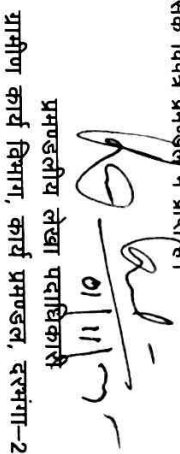 प्रमण्डल
01/11
प्रमण्डलीय लेखा पदाधिकारी
ग्रामीण कार्य विभाग, कार्य प्रमण्डल, दरभंगा-2